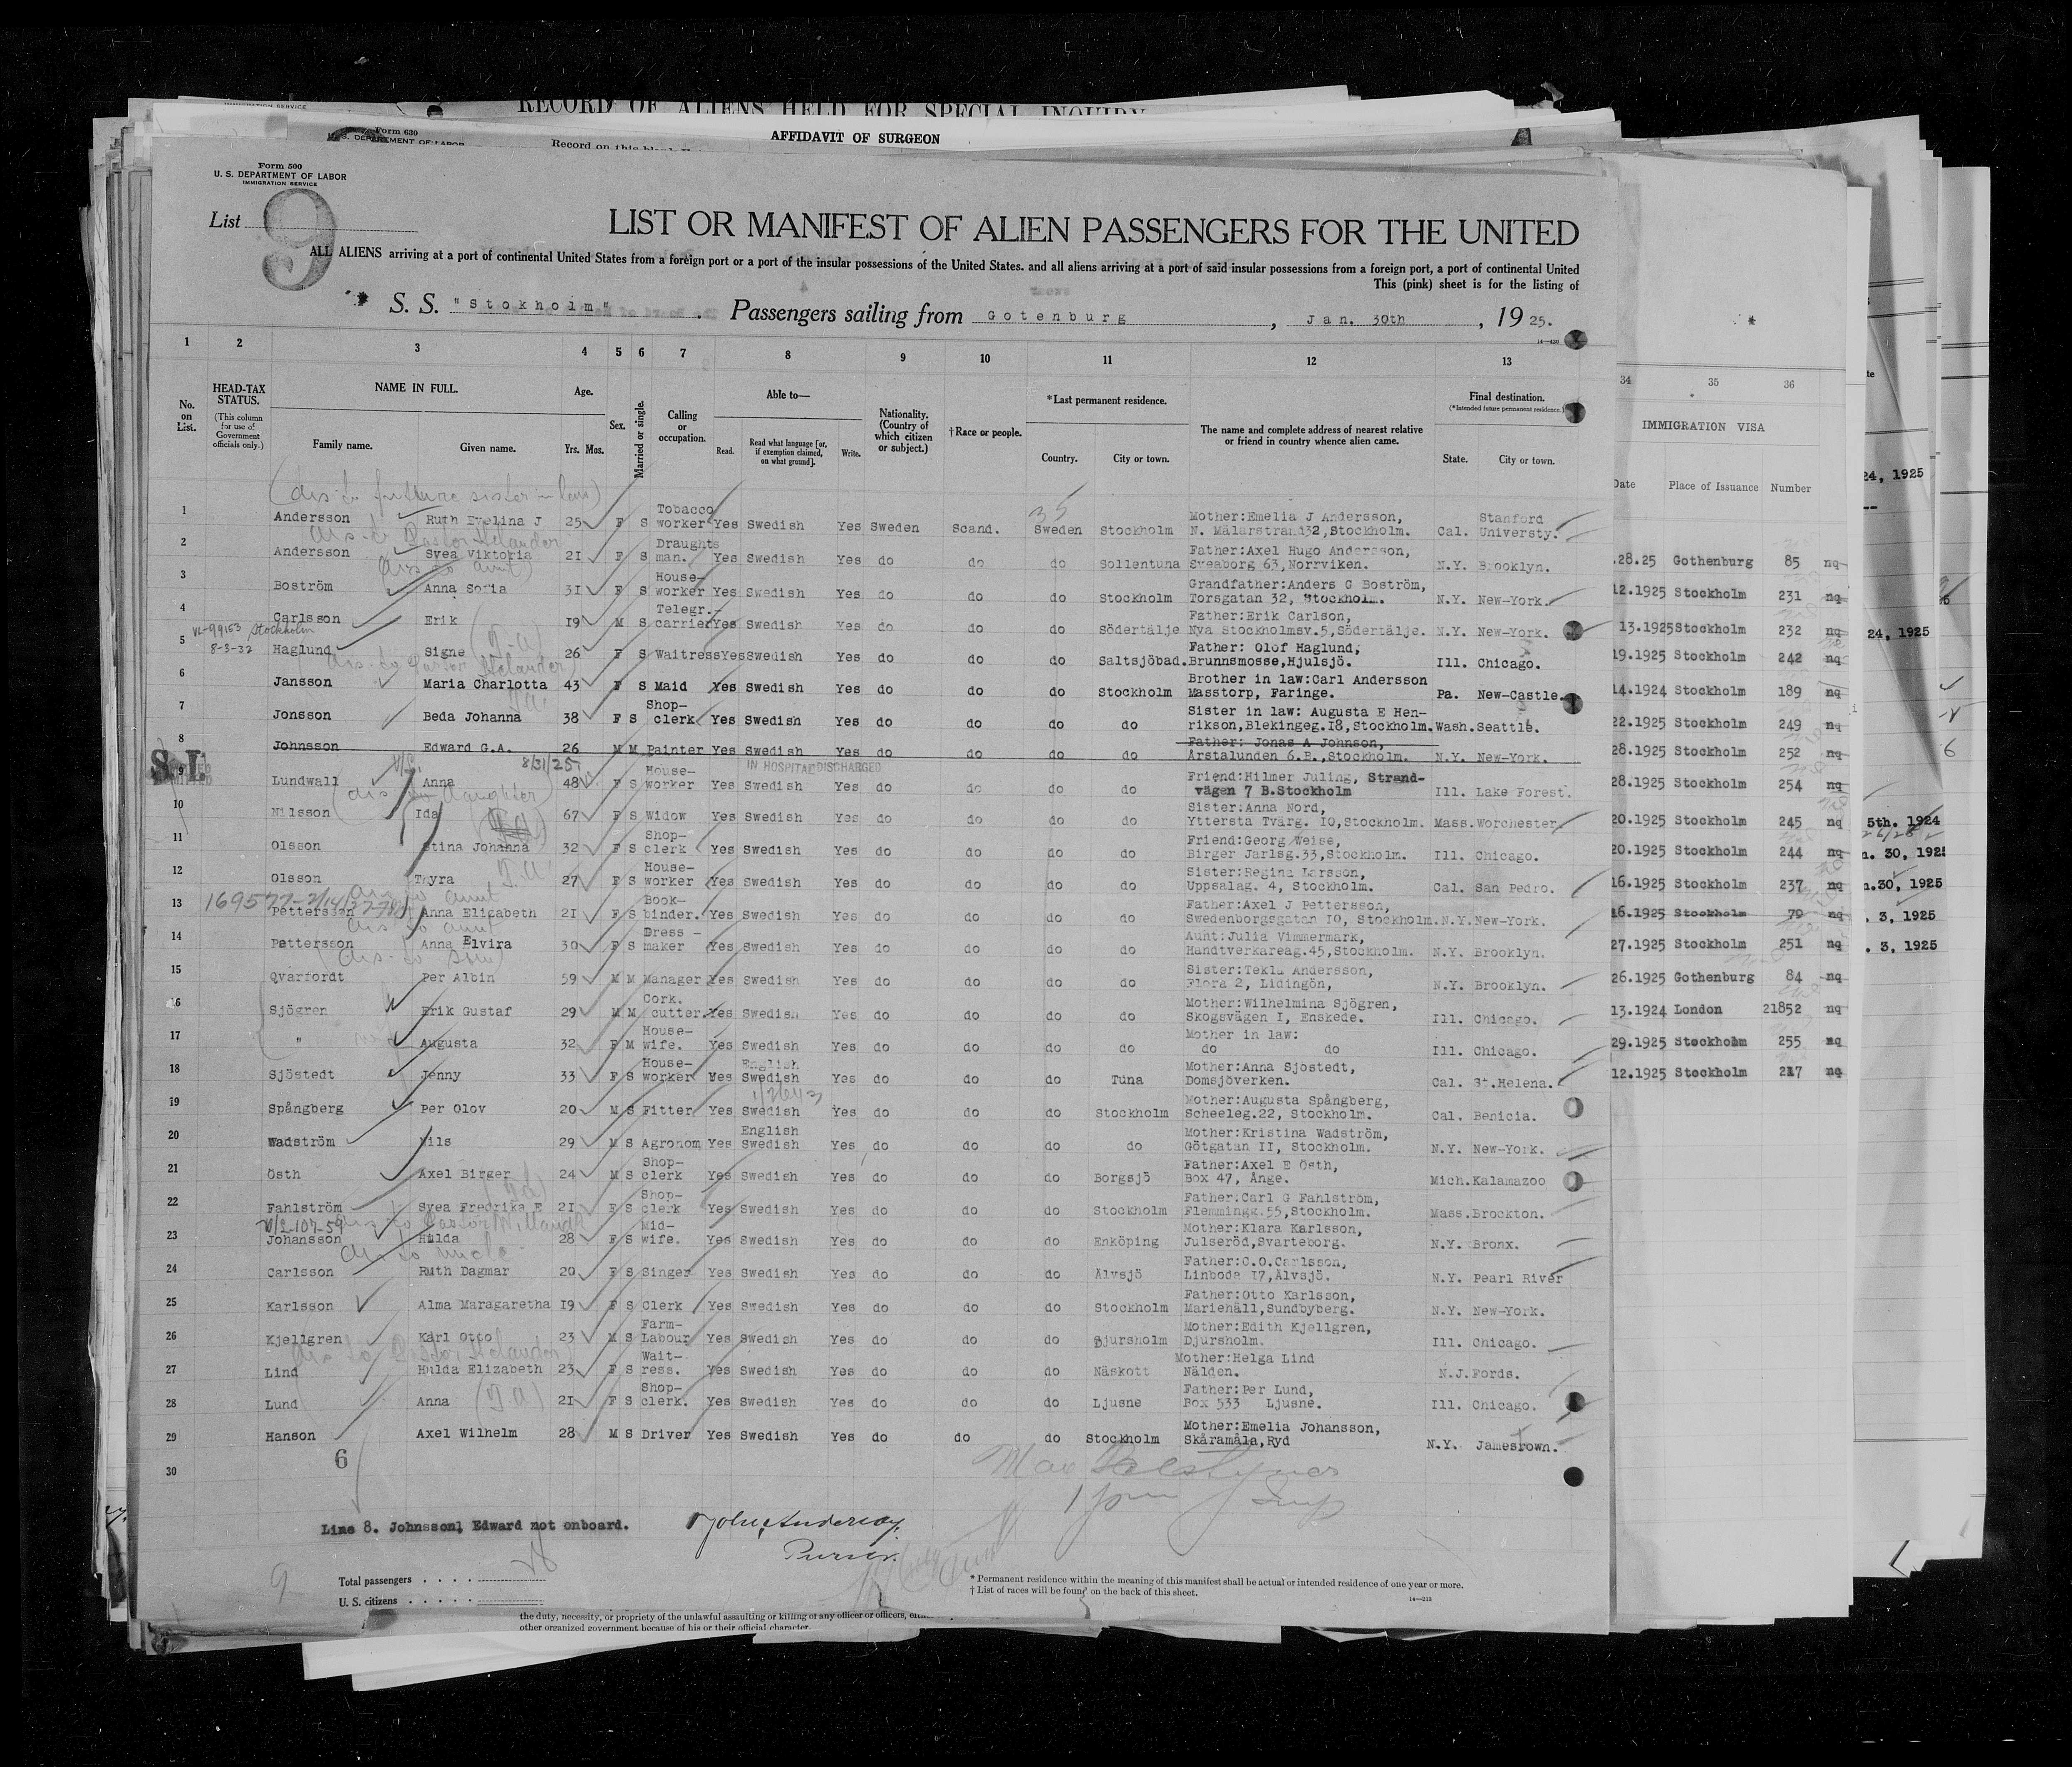 RECORD OF ALIENS HELD FOR SPECIAL INQUIRY
Form 630
U. S. DEPARTMENT OF LABOR
AFFIDAVIT OF SURGEON
Record on this blank
Form 500
U. S. DEPARTMENT OF LABOR
IMMIGRATION SERVICE
List 9
LIST OR MANIFEST OF ALIEN PASSENGERS FOR THE UNITED
ALL ALIENS arriving at a port of continental United States from a foreign port or a port of the insular possessions of the United States. and all aliens arriving at a port of said insular possessions from a foreign port, a port of continental United
This (pink) sheet is for the listing of
S. S. "Stokholm". Passengers sailing from Gotenburg, Jan. 30th, 1925.
14—430
1 2 3 4 5 6 7 8 9 10 11 12 13
No. on List. HEAD-TAX STATUS. (This column for use of Government officials only.) NAME IN FULL. Family name. Given name. Age. Yrs. Mos. Sex. Married or single. Calling or occupation. Able to— Read. Read what language [or, if exemption claimed, on what ground]. Write. Nationality. (Country of which citizen or subject.) †Race or people. *Last permanent residence. Country. City or town. The name and complete address of nearest relative or friend in country whence alien came. Final destination. (*Intended future permanent residence.) State. City or town.
(dis. to future sister in law)
1 Andersson Ruth Evelina J 25 F S Tobacco worker Yes Swedish Yes Sweden Scand. Sweden Stockholm Mother:Emelia J Andersson, N. Mälarstrand32,Stockholm. Cal. Stanford Universty.
dis. to Pastor Helander
2 Andersson Svea Viktoria 21 F S Draughts man. Yes Swedish Yes do do do Sollentuna Father:Axel Hugo Andersson, Sveaborg 63,Norrviken. N.Y. Brooklyn.
(dis to aunt)
3 Boström Anna Sofia 31 F S House-worker Yes Swedish Yes do do do Stockholm Grandfather:Anders G Boström, Torsgatan 32, Stockholm. N.Y. New-York.
4 Carlsson Erik 19 M S Telegr.-carrier Yes Swedish Yes do do do Södertälje Father:Erik Carlson, Nya Stockholmsv.5,Södertälje. N.Y. New-York.
VL-99163 Stockholm
8-3-32
5 Haglund Signe 26 F S Waitress Yes Swedish Yes do do do Saltsjöbad. Father: Olof Haglund, Brunnsmosse,Hjulsjö. Ill. Chicago.
dis. to Pastor Helander
6 Jansson Maria Charlotta 43 F S Maid Yes Swedish Yes do do do Stockholm Brother in law:Carl Andersson Masstorp, Faringe. Pa. New-Castle.
7 Jonsson Beda Johanna 38 F S Shop-clerk Yes Swedish Yes do do do do Sister in law: Augusta E Hen-rikson,Blekingeg.18,Stockholm. Wash. Seattle.
8 Johnsson Edward G.A. 26 M M Painter Yes Swedish Yes do do do do Father: Jonas A Johnson, Årstalunden 6.B.,Stockholm. N.Y. New-York.
S.I.
8/31/25
IN HOSPITAL DISCHARGED
9 Lundwall Anna 48 F S House-worker Yes Swedish Yes do do do do Friend:Hilmer Juling, Strand-vägen 7 B.Stockholm Ill. Lake Forest.
(dis to daughter)
10 Nilsson Ida 67 F S Widow Yes Swedish Yes do do do do Sister:Anna Nord, Yttersta Tvärg. 10,Stockholm. Mass. Worchester
11 Olsson Stina Johanna 32 F S Shop-clerk Yes Swedish Yes do do do do Friend:Georg Weise, Birger Jarlsg.33,Stockholm. Ill. Chicago.
12 Olsson Thyra 27 F S House-worker Yes Swedish Yes do do do do Sister:Regina Larsson, Uppsalag. 4, Stockholm. Cal. San Pedro.
dis to aunt
13 Pettersson Anna Elisabeth 21 F S Book-binder. Yes Swedish Yes do do do do Father:Axel J Pettersson, Swedenborgsgatan 10, Stockholm. N.Y. New-York.
dis to aunt
14 Pettersson Anna Elvira 30 F S Dress-maker Yes Swedish Yes do do do do Aunt:Julia Vimmermark, Handtverkareag.45,Stockholm. N.Y. Brooklyn.
(dis. to son)
15 Qvarfordt Per Albin 59 M M Manager Yes Swedish Yes do do do do Sister:Tekla Andersson, Flora 2, Lidingön, N.Y. Brooklyn.
16 Sjögren Erik Gustaf 29 M M Cork. cutter. Yes Swedish Yes do do do do Mother:Wilhelmina Sjögren, Skogsvägen I, Enskede. Ill. Chicago.
17 " Augusta 32 F M House-wife. Yes Swedish Yes do do do do Mother in law: do do Ill. Chicago.
18 Sjöstedt Jenny 33 F S House-worker Yes English Swedish Yes do do do Tuna Mother:Anna Sjöstedt, Domsjöverken. Cal. St.Helena.
19 Spångberg Per Olov 20 M S Fitter Yes Swedish Yes do do do Stockholm Mother:Augusta Spångberg, Scheeleg.22, Stockholm. Cal. Benicia.
20 Wadström Nils 29 M S Agronom Yes English Swedish Yes do do do do Mother:Kristina Wadström, Götgatan II, Stockholm. N.Y. New-York.
21 Östh Axel Birger 24 M S Shop-clerk Yes Swedish Yes do do do Borgsjö Father:Axel E Östh, Box 47, Ånge. Mich. Kalamazoo
22 Fahlström Svea Fredrika E 21 F S Shop-clerk Yes Swedish Yes do do do Stockholm Father:Carl G Fahlström, Flemmingg.55,Stockholm. Mass. Brockton.
23 Johansson Hilda 28 F S Mid-wife. Yes Swedish Yes do do do Enköping Mother:Klara Karlsson, Julseröd,Svarteborg. N.Y. Bronx.
dis to uncle
24 Carlsson Ruth Dagmar 20 F S Singer Yes Swedish Yes do do do Älvsjö Father:C.O.Carlsson, Linboda 17,Älvsjö. N.Y. Pearl River
25 Karlsson Alma Maragaretha 19 F S Clerk Yes Swedish Yes do do do Stockholm Father:Otto Karlsson, Mariehäll,Sundbyberg. N.Y. New-York.
26 Kjellgren Karl Otto 23 M S Farm-Labour Yes Swedish Yes do do do Djursholm Mother:Edith Kjellgren, Djursholm. Ill. Chicago.
dis to Pastor Helander
27 Lind Hulda Elizabeth 23 F S Wait-ress. Yes Swedish Yes do do do Näskott Mother:Helga Lind Nälden. N.J. Fords.
28 Lund Anna 21 F S Shop-clerk. Yes Swedish Yes do do do Ljusne Father:Per Lund, Box 533 Ljusne. Ill. Chicago.
29 Hanson Axel Wilhelm 28 M S Driver Yes Swedish Yes do do do Stockholm Mother:Emelia Johansson, Skåramåla,Ryd N.Y. Jamestown.
30
6
Line 8. Johnsson, Edward not onboard.
Purser.
9
Total passengers
U. S. citizens
* Permanent residence within the meaning of this manifest shall be actual or intended residence of one year or more.
† List of races will be found on the back of this sheet.
14—213
the duty, necessity, or propriety of the unlawful assaulting or killing of any officer or officers,
other organized government because of his or their official character.
34 35 36
IMMIGRATION VISA
Date Place of Issuance Number
.28.25 Gothenburg 85 nq
12.1925 Stockholm 231 nq
13.1925 Stockholm 232 nq
19.1925 Stockholm 242 nq
14.1924 Stockholm 189 nq
22.1925 Stockholm 249 nq
28.1925 Stockholm 252 nq
28.1925 Stockholm 254 nq
20.1925 Stockholm 245 nq
20.1925 Stockholm 244 nq
16.1925 Stockholm 237 nq
16.1925 Stockholm 79 nq
27.1925 Stockholm 251 nq
26.1925 Gothenburg 84 nq
13.1924 London 21852 nq
29.1925 Stockholm 255 nq
12.1925 Stockholm 217 nq
24, 1925
24, 1925
5th. 1924
. 30, 1925
.30, 1925
. 3, 1925
. 3, 1925